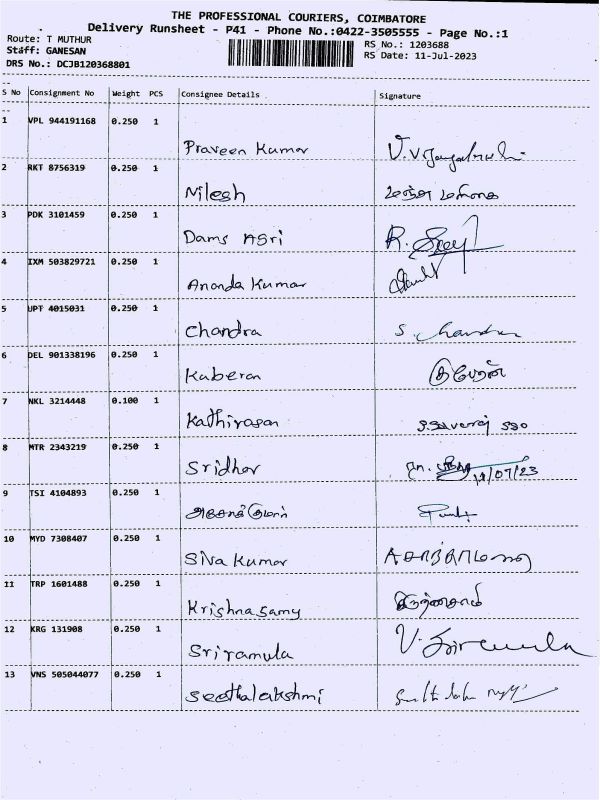 THE PROFESSIONAL COURIERS, COIMBATORE
Delivery Runsheet - P41 - Phone No.:0422-3505555 - Page No.:1
Route: T MUTHUR
RS No.: 1203688
Staff: GANESAN
RS Date: 11-Jul-2023
DRS No.: DCJB120368801
S No Consignment No Weight PCS Consignee Details Signature
1 VPL 944191168 0.250 1
Praveen Kumar
2 RKT 8756319 0.250 1
Nilesh
3 PDK 3101459 0.250 1
Dams Agri R.
4 IXM 503829721 0.250 1
Ananda Kumar
5 UPT 4015031 0.250 1
Chandra S. Chandra
6 DEL 901338196 0.250 1
Kuberan குபேரன்
7 NKL 3214448 0.100 1
Kathirasan
8 MTR 2343219 0.250 1
Sridhar 11/07/23
9 TSI 4104893 0.250 1
அசோக்குமார்
10 MYD 7308407 0.250 1
Siva Kumar
11 TRP 1601488 0.250 1
Krishnasamy
12 KRG 131908 0.250 1
Sriramula V.
13 VNS 505044077 0.250 1
Seethalakshmi